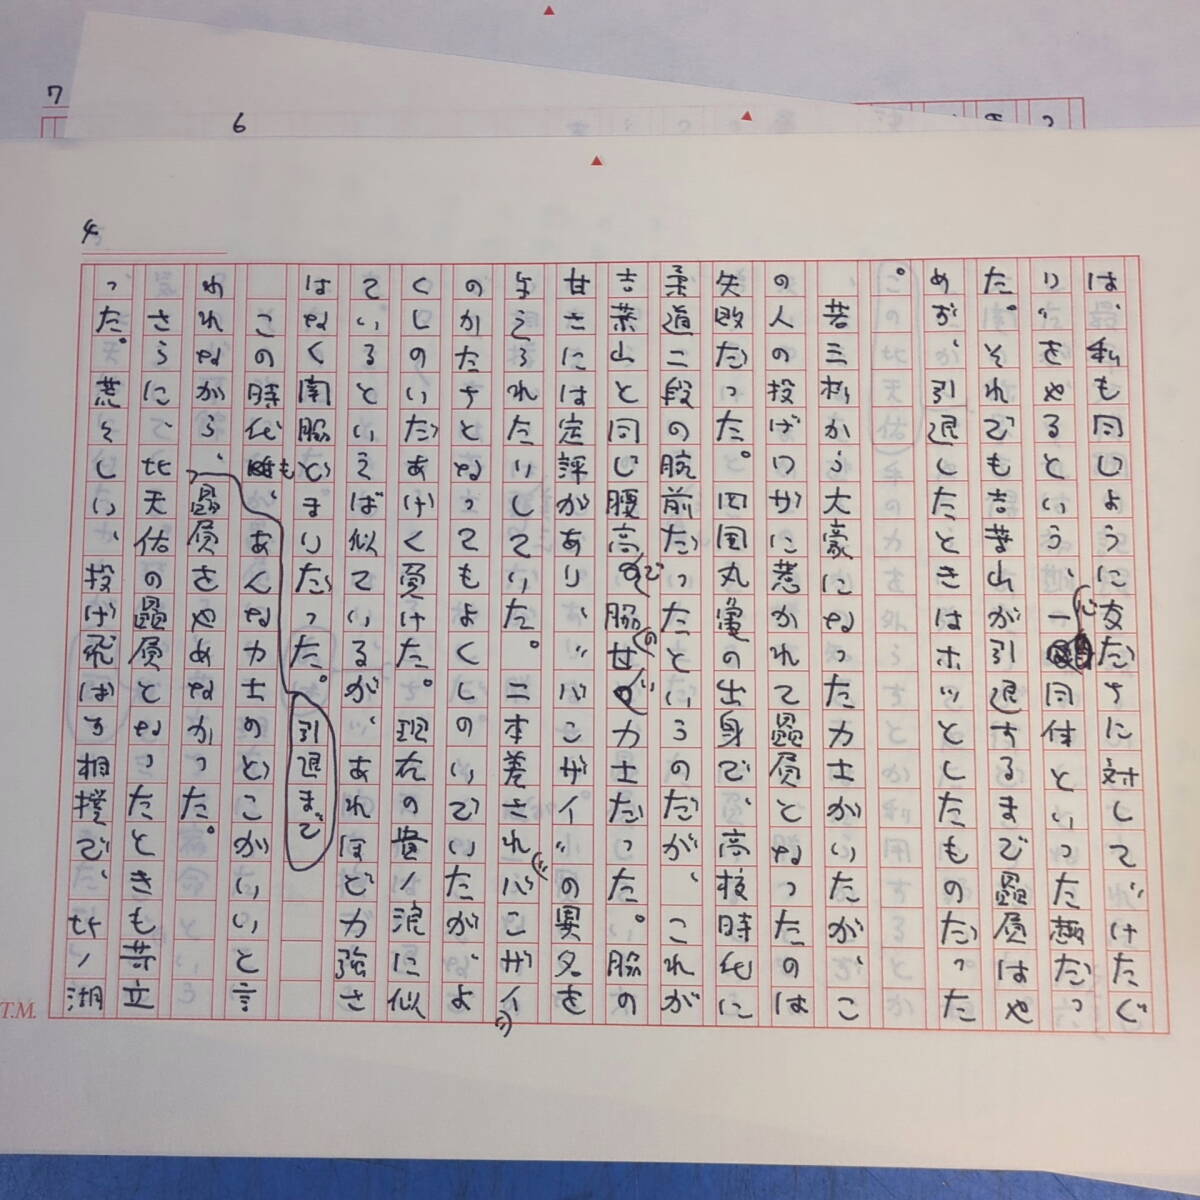 7
6
4
は、私も同じように友だちに対して〃けたぐ
り〃をやるという、一心同体といった趣だっ
た。それでも吉葉山が引退するまで贔屓はや
めず、引退したときはホッとしたものだった
。
若三杉から大豪になった力士がいたが、こ
の人の投げワザに惹かれて贔屓となったのは
失敗だった。四国丸亀の出身で、高校時代に
柔道二段の腕前だったというのだが、これが
吉葉山と同じ腰高で脇の甘い力士だった。脇の
甘さには定評があり、〃バンザイ〃の異名を
与えられたりしていた。二本差され〃バンザイ〃
のかたちとなってもよくしのいでいたが、よ
くしのいだあげく負けた。現在の貴ノ浪に似
ているといえば似ているが、あれほど力強さ
はなく関脇どまりだった。引退まで
この時代も、あんな力士のどこがいいと言
われながら、贔屓をやめなかった。
さらに北天佑の贔屓となったときも苛立
った。荒々しい、投げ飛ばす相撲で、北ノ湖
T.M.